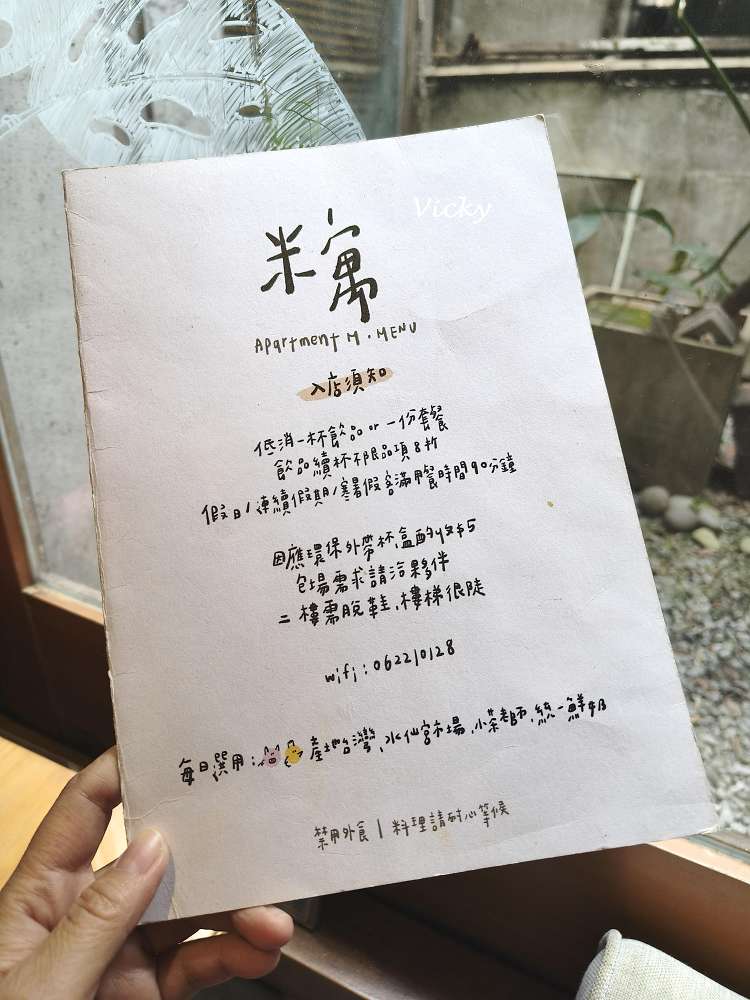 Vicky
米寓
Apartment M . MENU
入店須知
低消一杯飲品 or 一份套餐
飲品續杯不限品項8折
假日/連續假期/寒暑假客滿用餐時間90分鐘
因應環保外帶杯、盒酌收$5
包場需求請洽夥伴
二樓需脫鞋、樓梯很陡
wifi : 062210128
每日選用 : 產地台灣、水仙宮市場、小茶老師、統一鮮奶
禁用外食 | 料理請耐心等候